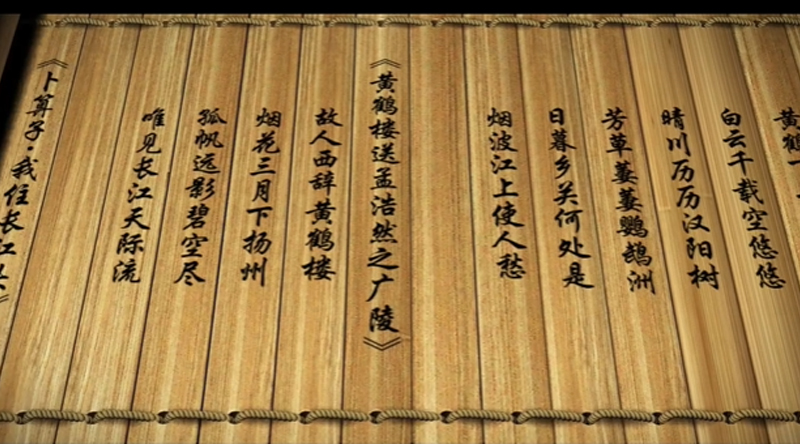 黄鹤一
白云千载空悠悠
晴川历历汉阳树
芳草萋萋鹦鹉洲
日暮乡关何处是
烟波江上使人愁
《黄鹤楼送孟浩然之广陵》
故人西辞黄鹤楼
烟花三月下扬州
孤帆远影碧空尽
唯见长江天际流
《卜算子·我住长江头》